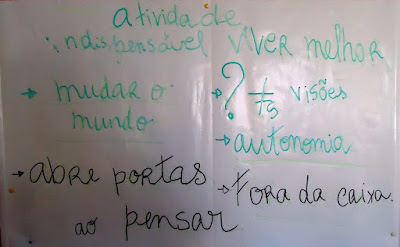 atividade
indispensável viver melhor
→ mudar o
mundo
→ ? 1/Ts visões
→ autonomia
→ abre portas
ao pensar
→ Fora da caixa.